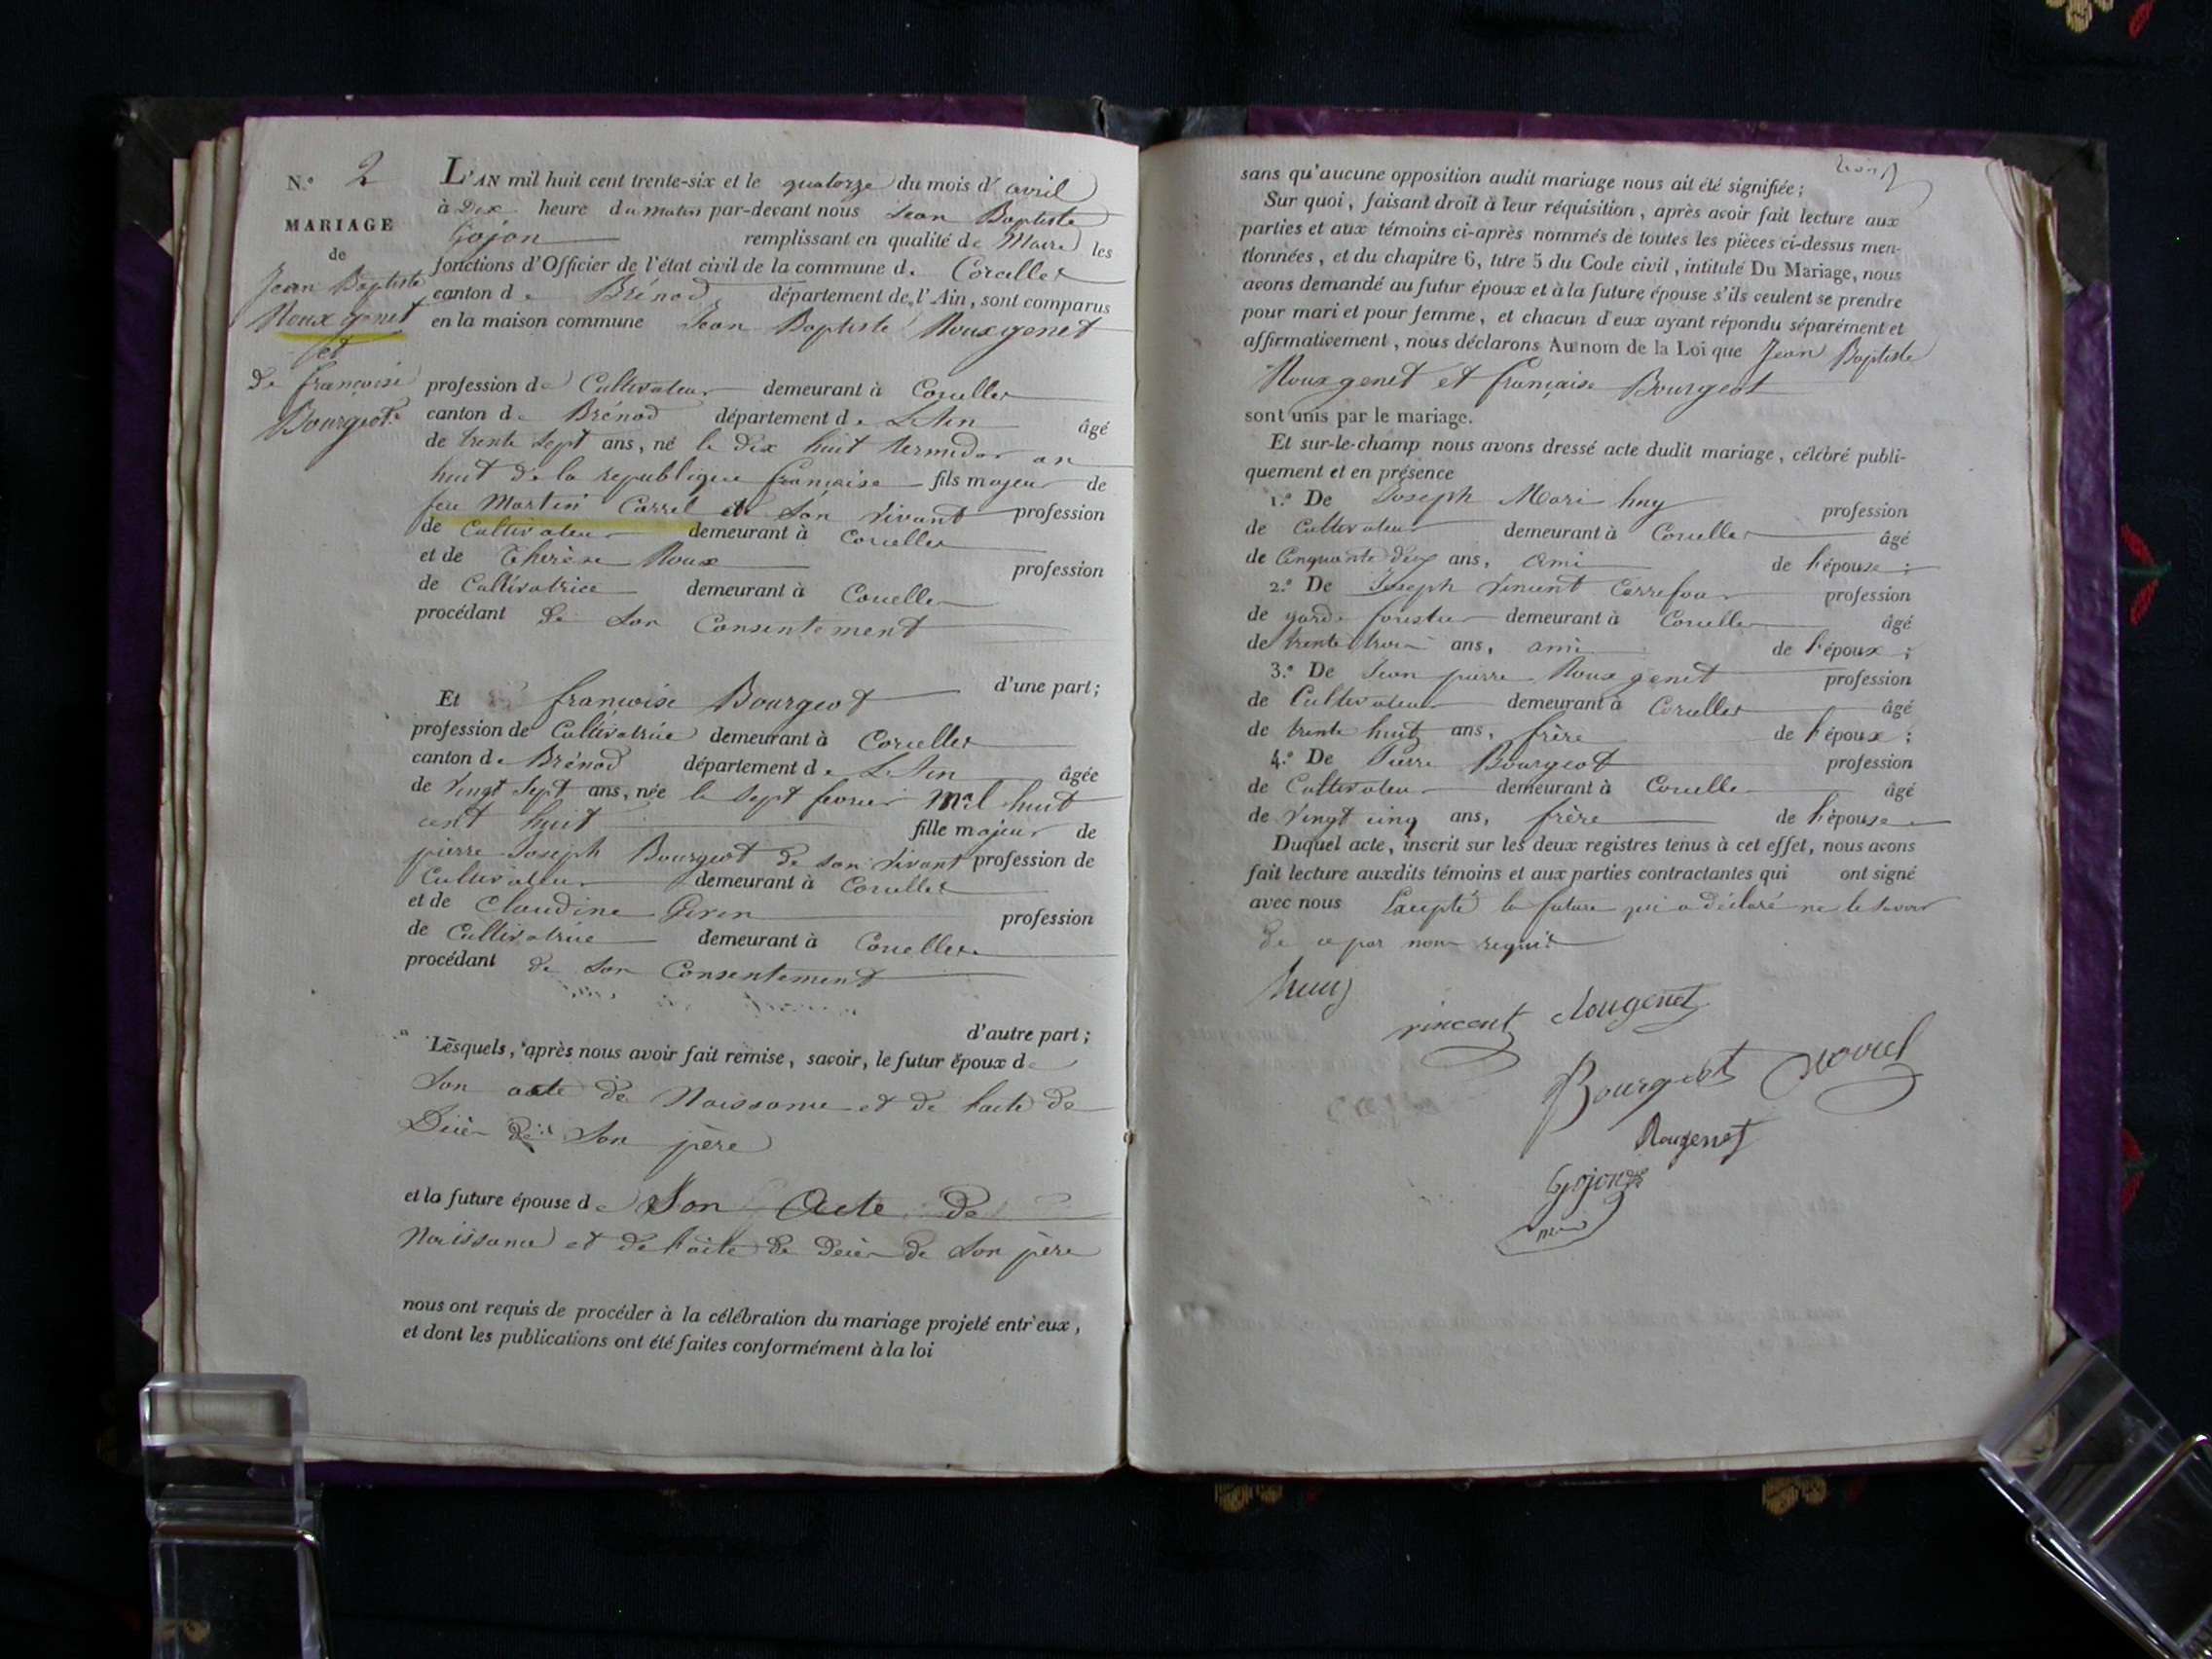 N.º 2
MARIAGE
de
Jean Baptiste
Rouxgenet
et
de françoise
Bourgeot
L'AN mil huit cent trente-six et le quatorze du mois d' avril
à Dix heure du matin par-devant nous Jean Baptiste
Gojon remplissant en qualité de Maire les
fonctions d'Officier de l'état civil de la commune de Corcelles
canton de Brénod département de l'Ain, sont comparus
en la maison commune Jean Baptiste Rouxgenet
profession de Cultivateur demeurant à Corcelles
canton de Brénod département de L'Ain âgé
de trente Sept ans, né le dix huit termidor an
huit de la republique française fils majeur de
feu Martin Carrel de Son vivant profession
de Cultivateur demeurant à Corcelles
et de Therèse Roux profession
de Cultivatrice demeurant à Corcelles
procédant de Son Consentement
d'une part;
Et françoise Bourgeot
profession de Cultivatrice demeurant à Corcelles
canton de Brénod département de L'Ain âgée
de vingt Sept ans, née le Sept fevrier Mil huit
cent huit fille majeur de
pierre Joseph Bourgeot de son vivant profession de
Cultivateur demeurant à Corcelles
et de Claudine profession
de Cultivatrice demeurant à Corcelles
procédant de Son Consentement
d'autre part;
Lesquels, après nous avoir fait remise, savoir, le futur époux de
Son acte de Naissance et de l'acte de
Décès de Son père
et la future épouse de Son Acte de
Naissance et de l'acte de décès de Son père
nous ont requis de procéder à la célébration du mariage projeté entr'eux,
et dont les publications ont été faites conformément à la loi
sans qu'aucune opposition audit mariage nous ait été signifiée;
Sur quoi, faisant droit à leur réquisition, après avoir fait lecture aux
parties et aux témoins ci-après nommés de toutes les pièces ci-dessus men-
tionnées, et du chapitre 6, titre 5 du Code civil, intitulé Du Mariage, nous
avons demandé au futur époux et à la future épouse s'ils veulent se prendre
pour mari et pour femme, et chacun d'eux ayant répondu séparément et
affirmativement, nous déclarons Au nom de la Loi que Jean Baptiste
Rouxgenet et française Bourgeot
sont unis par le mariage.
Et sur-le-champ nous avons dressé acte dudit mariage, célébré publi-
quement et en présence
1.º De Joseph Mari huy profession
de Cultivateur demeurant à Corcelles âgé
de Cinquante deux ans, ami de l'épouse;
2.º De Joseph Vincent Carrefour profession
de garde forestier demeurant à Corcelles âgé
de trente trois ans, ami de l'époux;
3.º De Jean pierre Rouxgenet profession
de Cultivateur demeurant à Corcelles âgé
de trente huit ans, frère de l'époux;
4.º De Pierre Bourgeot profession
de Cultivateur demeurant à Corcelles âgé
de vingt cinq ans, frère de l'épouse
Duquel acte, inscrit sur les deux registres tenus à cet effet, nous avons
fait lecture auxdits témoins et aux parties contractantes qui ont signé
avec nous Excepté la future qui a déclaré ne le savoir
de ce par nous requis
huy
vincent Rougenet
Bourgeot
Rougenet
Gojon